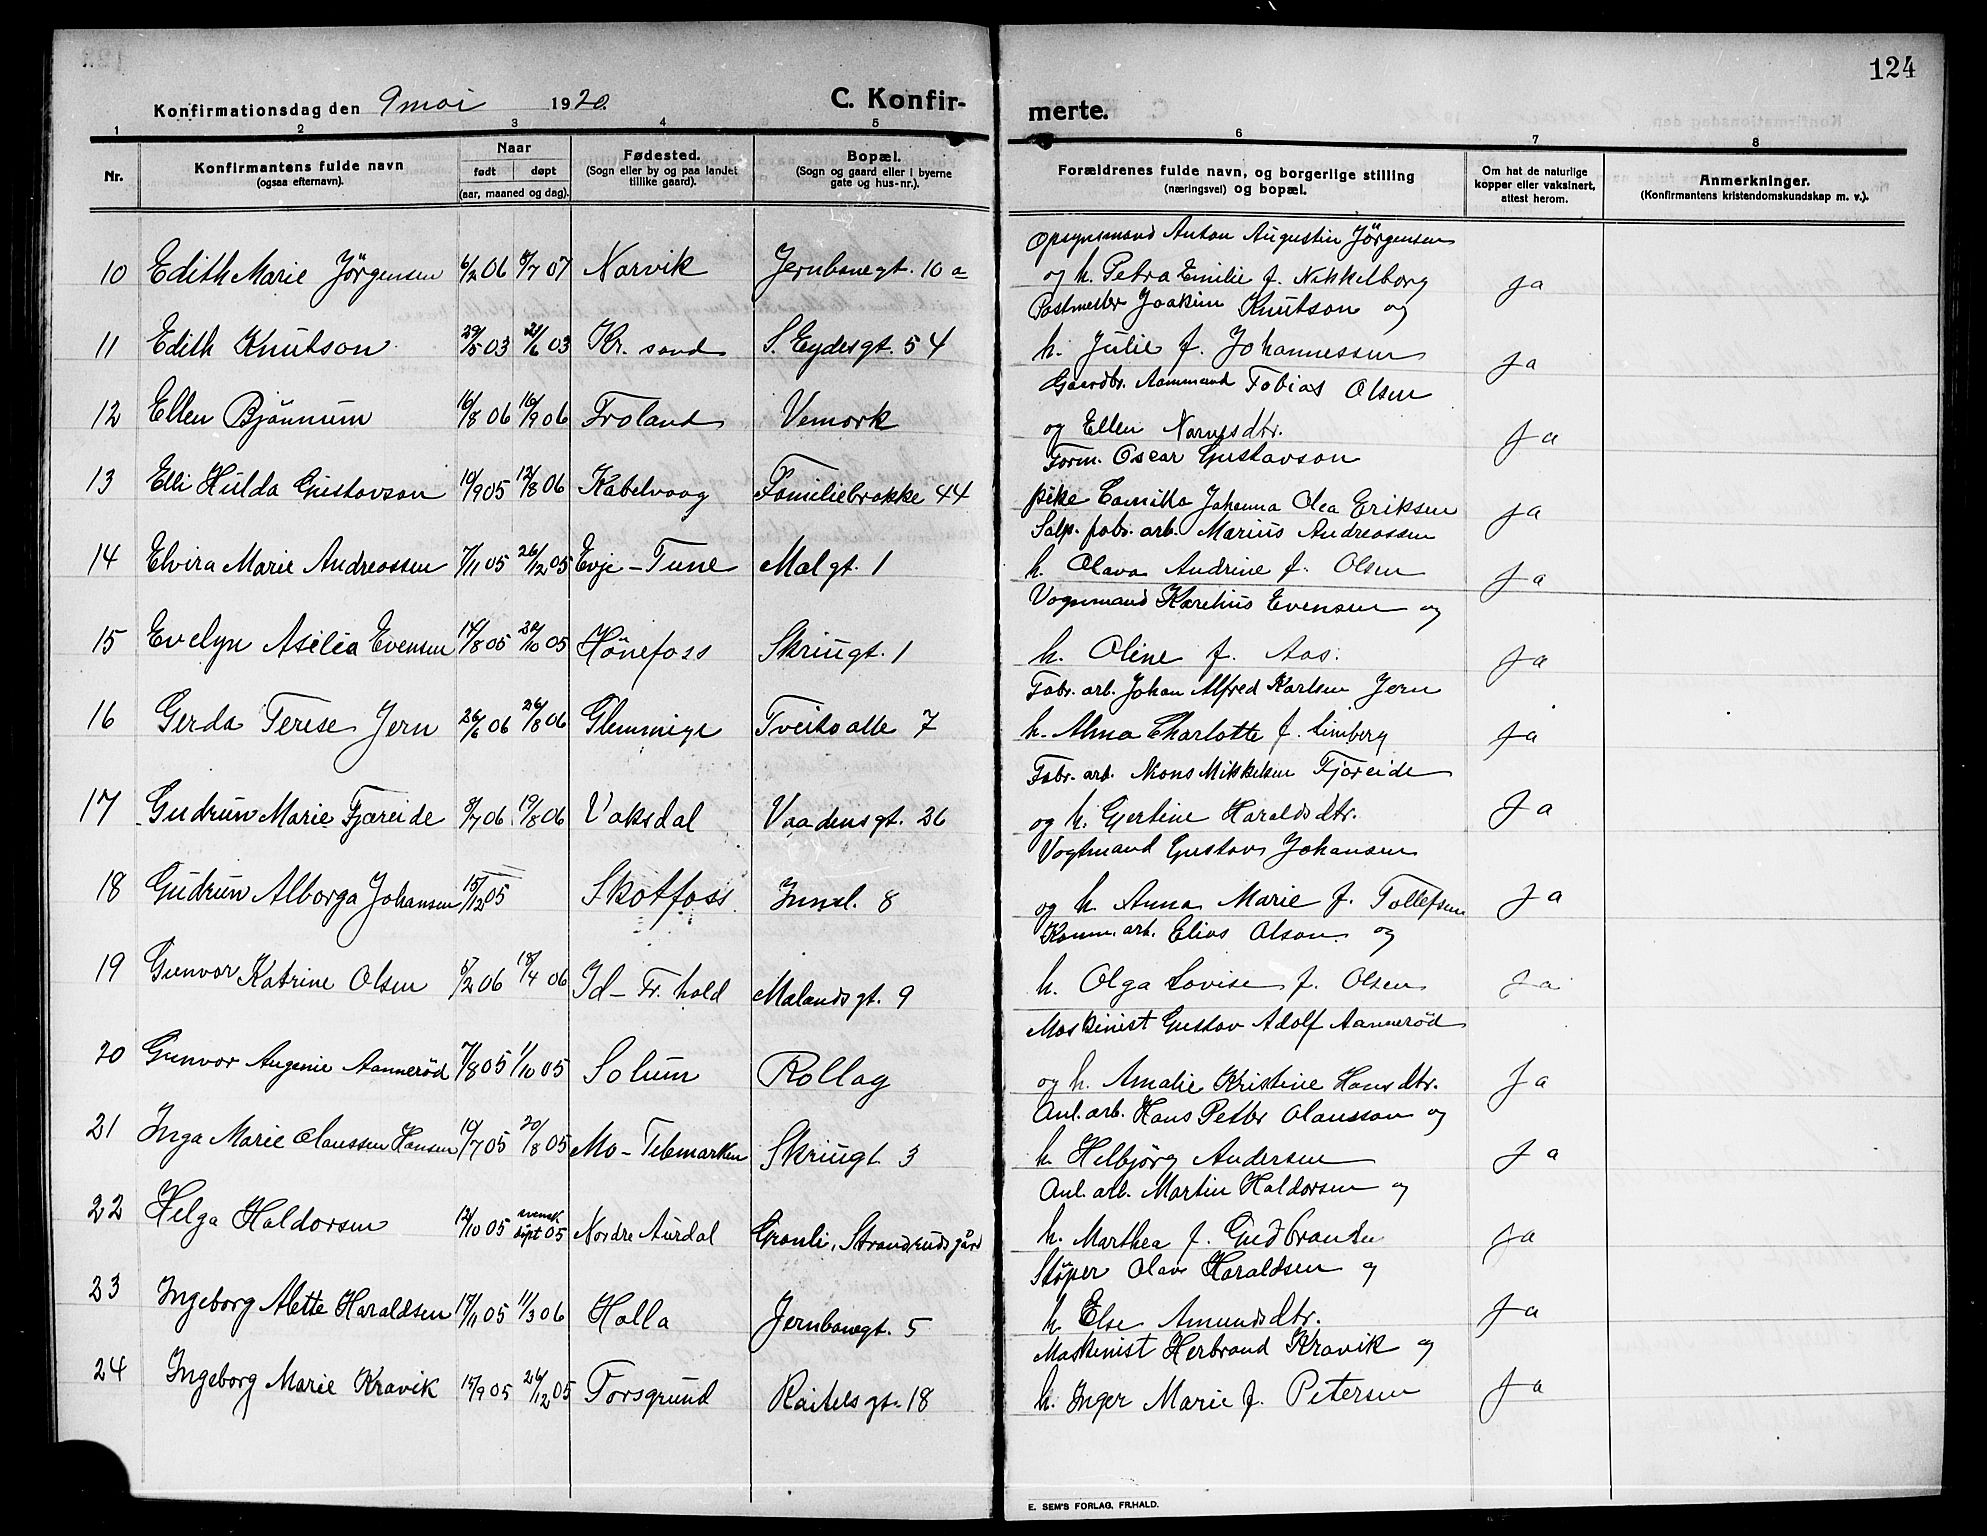 124
Konfirmationsdag den 9 mai 1920.
C. Konfir-
merte.
1 2 3 4 5 6 7 8
Nr.
Konfirmantens fulde navn
(ogsaa efternavn).
Naar
født døpt
(aar, maaned og dag).
Fødested.
(Sogn eller by og paa landet
tillike gaard).
Bopæl.
(Sogn og gaard eller i byerne
gate og hus-nr.).
Forældrenes fulde navn, og borgerlige stilling
(næringsvei) og bopæl.
Om hat de naturlige
kopper eller vaksinert,
attest herom.
Anmerkninger.
(Konfirmantens kristendomskundskap m. v.).
Opsynsmand Anton Augustin Jörgensen
10 Edith Marie Jörgensen 6/2 06 8/7 07 Narvik Jernbanegt. 10 a og h. Petra Emilie f. Nikkelborg ja
Postmester Joakim Knutson og
11 Edith Knutson 29/5 03 21/6 03 Kr. sand S. Eydesgt. 54 h. Julie f. Johannessen ja
Gaardbr. Aammund Tobias Olsen
12 Ellen Bjönnum 16/8 06 16/9 06 Froland Vemork og Ellen ja
Form. Oscar Gustavson
13 Elli Hulda Gustavson 10/9 05 12/8 06 Kabelvaag Familiebrakke 44 pike Camilla Johanna Olea Eriksen ja
Salp. fabr. arb. Marius Andreassen
14 Elvira Marie Andreassen 7/11 05 26/12 05 Evje - Tune Malgt. 1 h. Olava Andrine f. Olsen ja
Vognmand Karelius Evensen og
15 Evelyn Asilia Evensen 14/8 05 /10 05 Hönefoss Skriugt. 1 h. Oline f. Aas. ja
Fabr. arb. Johan Alfred Karlsen Jern
16 Gerda Terese Jern 26/6 06 26/8 06 Glemmige Tveitoalle 7 h. Alma Charlotte f. Limberg ja
Fabr. arb. Mons Mikkelsen Fjæreide
17 Gudrun Marie Fjæreide 8/7 06 19/8 06 Vaksdal Vaadensgt. 26 og h. Gjertine Haraldsdtr. Ja
Vogtmand Gustav Johansen
18 Gudrun Alborga Johansen 15/12 05 Skotfoss Innl. 8 og h. Anna Marie f. Tollefsen ja
Komm. arb. Elias Olson og
19 Gunvor Katrine Olsen 5/2 06 18/4 06 Id - Fr. hald Malandsgt. 9 h. Olga Lovise f. Olsen ja
Maskinist Gustav Adolf Aannerød
20 Gunvor Augenie Aannerød 7/8 05 1/10 05 Solum Rollag og h. Amalie Kristine Hansdtr. Ja
Anl. arb. Hans Petter Olausson og
21 Inga Marie Olaussen Hansen 10/7 05 20/8 05 Mo - Telemarken Skriugt. 3 h. Helbjörg Andersen Ja
Anl. arb. Martin Haldorsen og
22 Helga Haldorsen 12/10 05 svensk döpt 05 Nordre Aurdal Granli, Strandrudsgård h. Marthea f. Gudbransen ja
Stöper Olav Haraldsen og
23 Ingeborg Alette Haraldsen 19/11 05 11/3 06 Holla Jernbanegt. 5 h. Else Amundsdtr. ja
Maskinist Herbrand Kravik og
24 Ingeborg Marie Kravik 15/9 05 26/12 05 Torsgrund Raitelsgt. 18 h. Inger Marie f. Petersen ja
E. SEM'S FORLAG, FR.HALD.